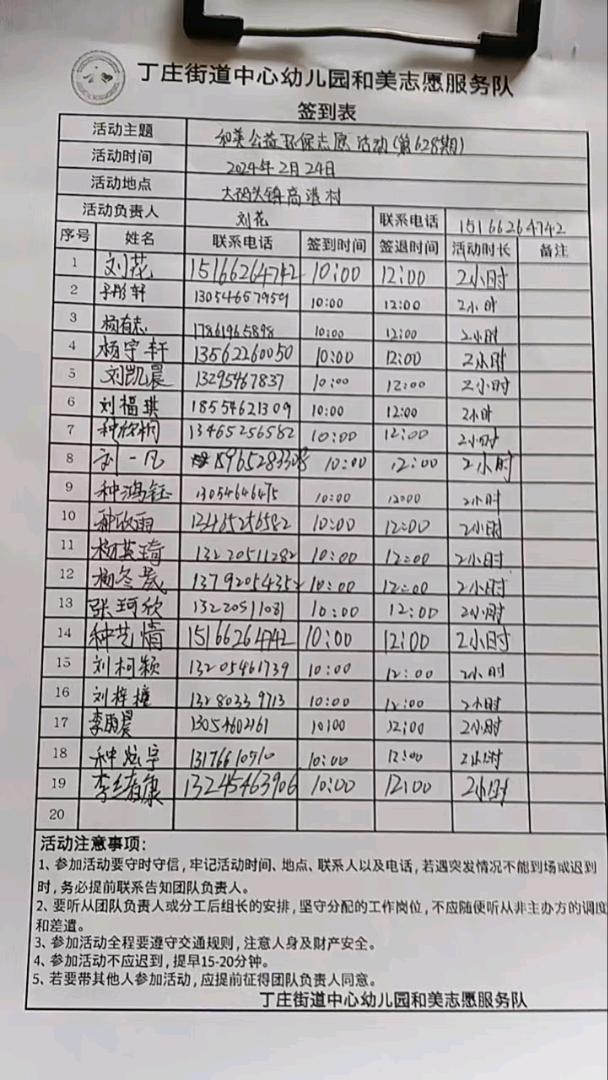 丁庄街道中心幼儿园和美志愿服务队
签到表
活动主题 和美公益环保志愿活动(第628期)
活动时间 2024年2月24日
活动地点 大码头镇高港村
活动负责人 刘花 联系电话 15166264742
序号 姓名 联系电话 签到时间 签退时间 活动时长 备注
1 刘花 15166264742 10:00 12:00 2小时
2 13054657959 10:00 12:00 2小时
3 杨有志 17861965898 10:00 12:00 2小时
4 杨宇轩 13562260050 10:00 12:00 2小时
5 刘凯晨 13295467837 10:00 12:00 2小时
6 刘福琪 18554621309 10:00 12:00 2小时
7 种欣桐 13465256582 10:00 12:00 2小时
8 刘一凡 10:00 12:00 2小时
9 种鸿钰 13054646475 10:00 12:00 2小时
10 10:00 12:00 2小时
11 杨英琦 13220511282 10:00 12:00 2小时
12 杨冬晟 13792054352 10:00 12:00 2小时
13 张珂欣 13220511081 10:00 12:00 2小时
14 种艺情 15166264742 10:00 12:00 2小时
15 刘柯颖 13205461739 10:00 12:00 2小时
16 刘梓橦 13280339713 10:00 12:00 2小时
17 李雨晨 10:00 12:00 2小时
18 10:00 12:00 2小时
19 13245463906 10:00 12:00 2小时
20
活动注意事项:
1、参加活动要守时守信,牢记活动时间、地点、联系人以及电话,若遇突发情况不能到场或迟到
时,务必提前联系告知团队负责人。
2、要听从团队负责人或分工后组长的安排,坚守分配的工作岗位,不应随便听从非主办方的调度
和差遣。
3、参加活动全程要遵守交通规则,注意人身及财产安全。
4、参加活动不应迟到,提早15-20分钟。
5、若要带其他人参加活动,应提前征得团队负责人同意。
丁庄街道中心幼儿园和美志愿服务队